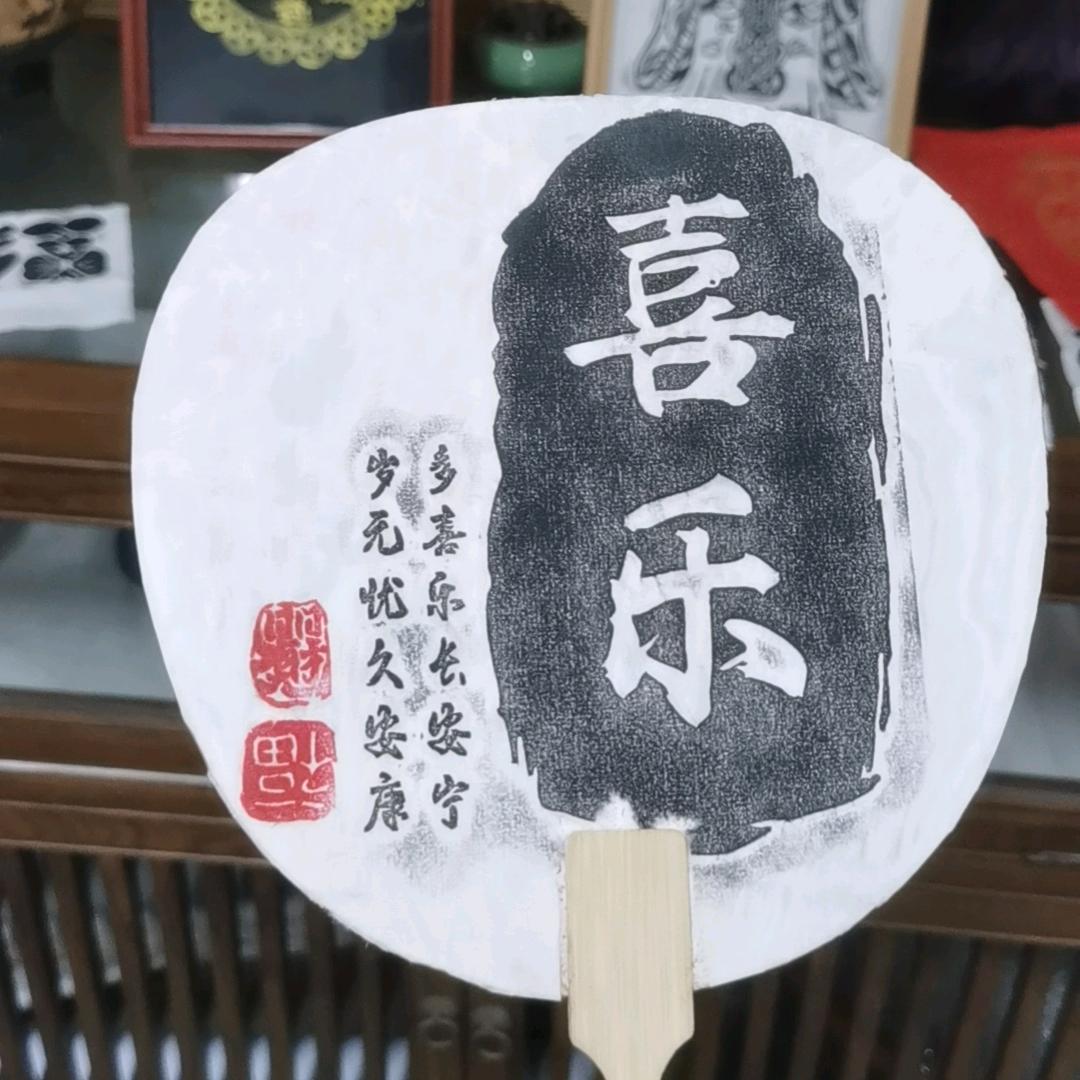 喜乐
多喜乐长安宁
岁无忧久安康